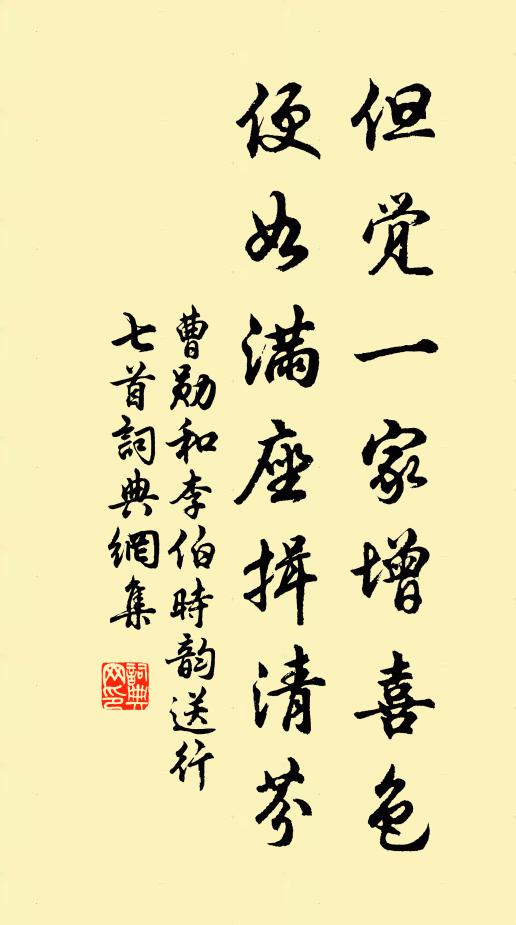 但觉一家增喜色
便如满座揖清芬
曹勋和李伯時韵送行
七首詞典網集
詞典網印